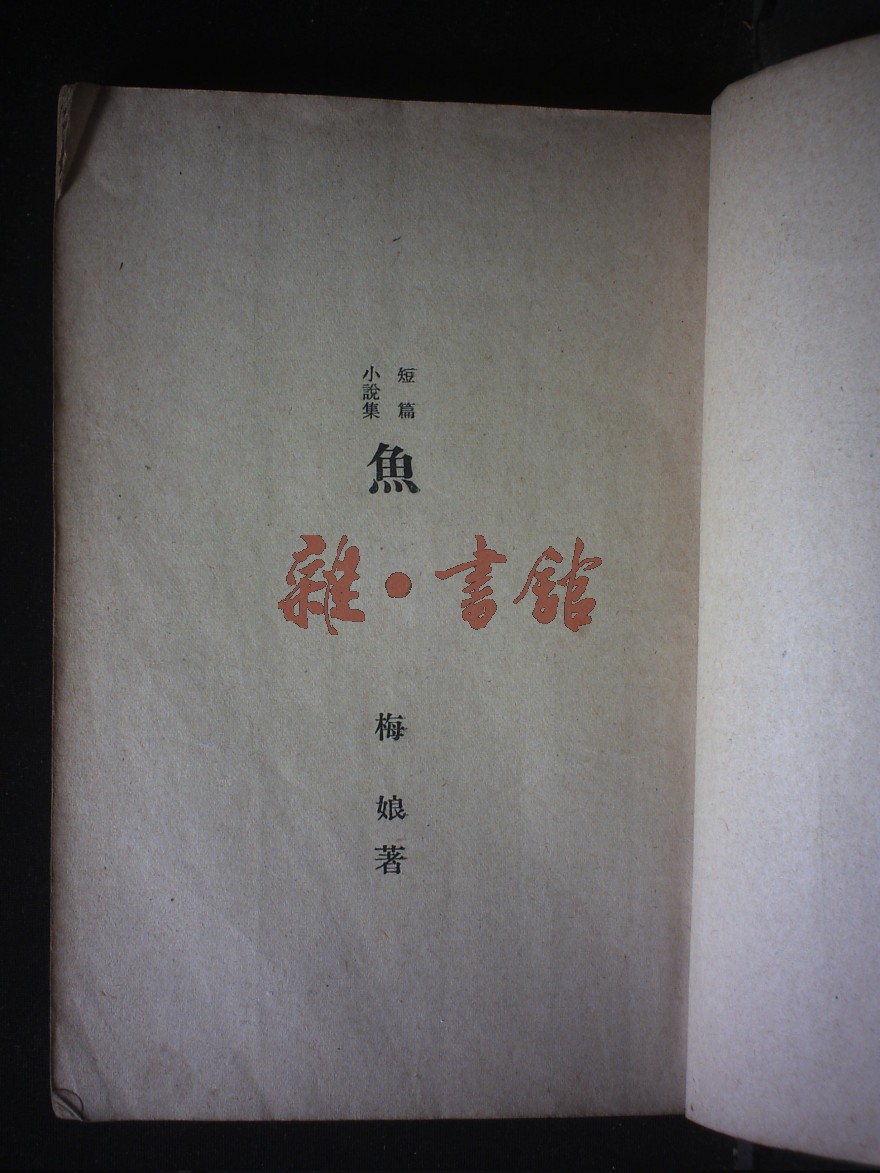 短篇
小說集
魚
雜·書館
梅娘著